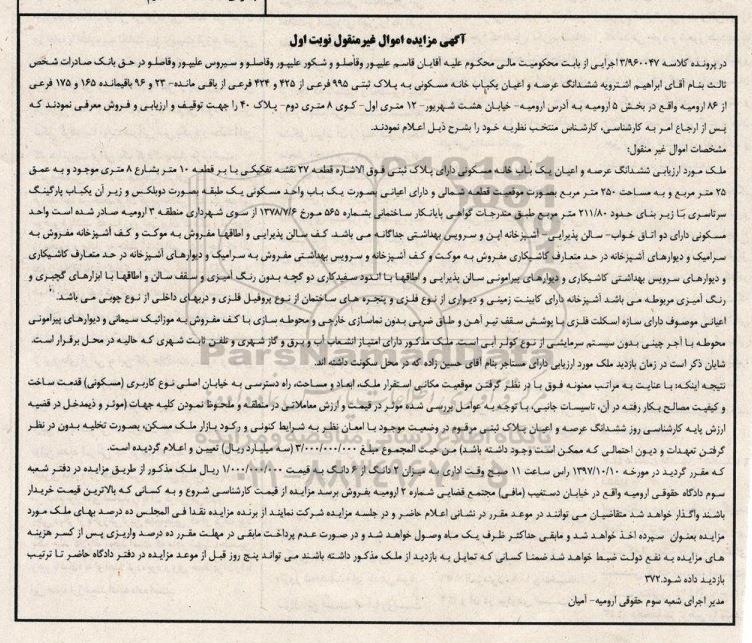 آگهی مزایده اموال غیرمنقول نوبت اول
در پرونده کلاسه ۳/۹۶۰۰۴۷ اجرایی از بابت محکومیت مالی محکوم علیه آقایان قاسم علیپور وقاصلو و شکور علیپور وقاصلو و سیروس علیپور وقاصلو در حق بانک صادرات شخص
ثالث بنام آقای ابراهیم اشترویه ششدانگ عرصه و اعیان یکباب خانه مسکونی به پلاک ثبتی ۹۹۵ فرعی از ۴۲۵ و ۴۲۴ فرعی از باقی مانده- ۲۳ و ۹۶ باقیمانده ۱۶۵ و ۱۷۵ فرعی
از ۸۶ ارومیه واقع در بخش ۵ ارومیه به آدرس ارومیه- خیابان هشت شهریور- ۱۲ متری اول- کوی ۸ متری دوم- پلاک ۴۰ را جهت توقیف و ارزیابی و فروش معرفی نمودند که
پس از ارجاع امر به کارشناسی، کارشناس منتخب نظریه خود را بشرح ذیل اعلام نمودند.
مشخصات اموال غیر منقول:
ملک مورد ارزیابی ششدانگ عرصه و اعیان یک باب خانه مسکونی دارای پلاک ثبتی فوق الاشاره قطعه ۲۷ نقشه تفکیکی با بر قطعه ۱۰ متر بشارع ۸ متری موجود و به عمق
۲۵ متر مربع و به مساحت ۲۵۰ متر مربع بصورت موقعیت قطعه شمالی و دارای اعیانی بصورت یک باب واحد مسکونی یک طبقه بصورت دوبلکس و زیر آن یکباب پارگینگ
سرتاسری با زیر بنای حدود ۲۱۱/۸۰ متر مربع طبق مندرجات گواهی پایانکار ساختمانی بشماره ۵۶۵ مورخ ۱۳۷۸/۷/۶ از سوی شهرداری منطقه ۳ ارومیه صادر شده است واحد
مسکونی دارای دو اتاق خواب- سالن پذیرایی- آشپزخانه اپن و سرویس بهداشتی جداگانه می باشد. کف سالن پذیرایی و اطاقها مفروش به موکت و کف آشپزخانه مفروش به
سرامیک و دیوارهای آشپزخانه در حد متعارف کاشیکاری مفروش به موکت و کف آشپزخانه و سرویس بهداشتی مفروش به سرامیک و دیوارهای آشپزخانه در حد متعارف کاشیکاری
و دیوارهای سرویس بهداشتی کاشیکاری و دیوارهای پیرامونی سالن پذیرایی و اطاقها با اندود سفیدکاری دو گچه بدون رنگ آمیزی و سقف سالن و اطاقها با ابزارهای گچبری و
رنگ آمیزی مربوطه می باشد آشپزخانه دارای کابینت زمینی و دیواری از نوع فلزی و پنجره های ساختمان از نوع پروفیل فلزی و دربهای داخلی از نوع چوبی می باشد.
اعیانی موصوف دارای سازه اسکلت فلزی با پوشش سقف تیر آهن و طاق ضربی بدون نماسازی خارجی و محوطه سازی با کف مفروش به موزائیک سیمانی و دیوارهای پیرامونی
محوطه با آجر چینی بدون سیستم سرمایشی از نوع کولر آبی است. ملک مذکور دارای امتیاز انشعاب آب و برق و گاز شهری و تلفن ثابت شهری که حالیه در محل برقرار است.
شایان ذکر است در زمان بازدید ملک مورد ارزیابی دارای مستاجر بنام آقای حسین زاده که در محل سکونت داشته اند.
نتیجه اینکه: با عنایت به مراتب معنونه فوق با در نظر گرفتن موقعیت مکانی استقرار ملک، ابعاد و مساحت، راه دسترسی به خیابان اصلی نوع کاربری (مسکونی) قدمت ساخت
و کیفیت مصالح بکار رفته در آن، تاسیسات جانبی، با توجه به عوامل بررسی شده موثر در قیمت و ارزش معاملاتی در منطقه و ملحوظ نمودن کلیه جهات (موثر و ذیمدخل در قضیه
ارزش پایه کارشناسی روز ششدانگ عرصه و اعیان پلاک ثبتی مرقوم در وضعیت موجود با امعان نظر به شرایط کنونی و رکود بازار ملک مسکن، بصورت تخلیه بدون در نظر
گرفتن تعهدات و دیون احتمالی که ممکن است وجود داشته باشد) من حیث المجموع مبلغ ۳/۰۰۰/۰۰۰/۰۰۰ (سه میلیارد ریال) تعیین و اعلام گردیده است.
که مقرر گردید در مورخه ۱۳۹۷/۱۰/۱۰ راس ساعت ۱۱ صبح وقت اداری به میزان ۲ دانگ از ۶ دانگ به قیمت ۱/۰۰۰/۰۰۰/۰۰۰ ریال ملک مذکور از طریق مزایده در دفتر شعبه
سوم دادگاه حقوقی ارومیه واقع در خیابان دستغیب (مافی) مجتمع قضایی شماره ۲ ارومیه بفروش برسد مزایده از قیمت کارشناسی شروع و به کسانی که بالاترین قیمت خریدار
باشند واگذار خواهد شد متقاضیان می توانند در موعد مقرر در نشانی اعلام حاضر و در جلسه مزایده شرکت نمایند از برنده مزایده نقدا فی المجلس ده درصد بهای ملک مورد
مزایده بعنوان سپرده اخذ خواهد شد و مابقی حداکثر ظرف یک ماه وصول خواهد شد و در صورت عدم پرداخت مابقی در مهلت مقرر ده درصد واریزی پس از کسر هزینه
های مزایده به نفع دولت ضبط خواهد شد ضمنا کسانی که تمایل به بازدید از ملک مذکور داشته باشند می تواند پنج روز قبل از موعد مزایده در دفتر دادگاه حاضر تا ترتیب
بازدید داده شود.۳۷۲
مدیر اجرای شعبه سوم حقوقی ارومیه- آمیان
ParsNamadData
پایگاه اطلاع رسانی مناقصه و مزایده